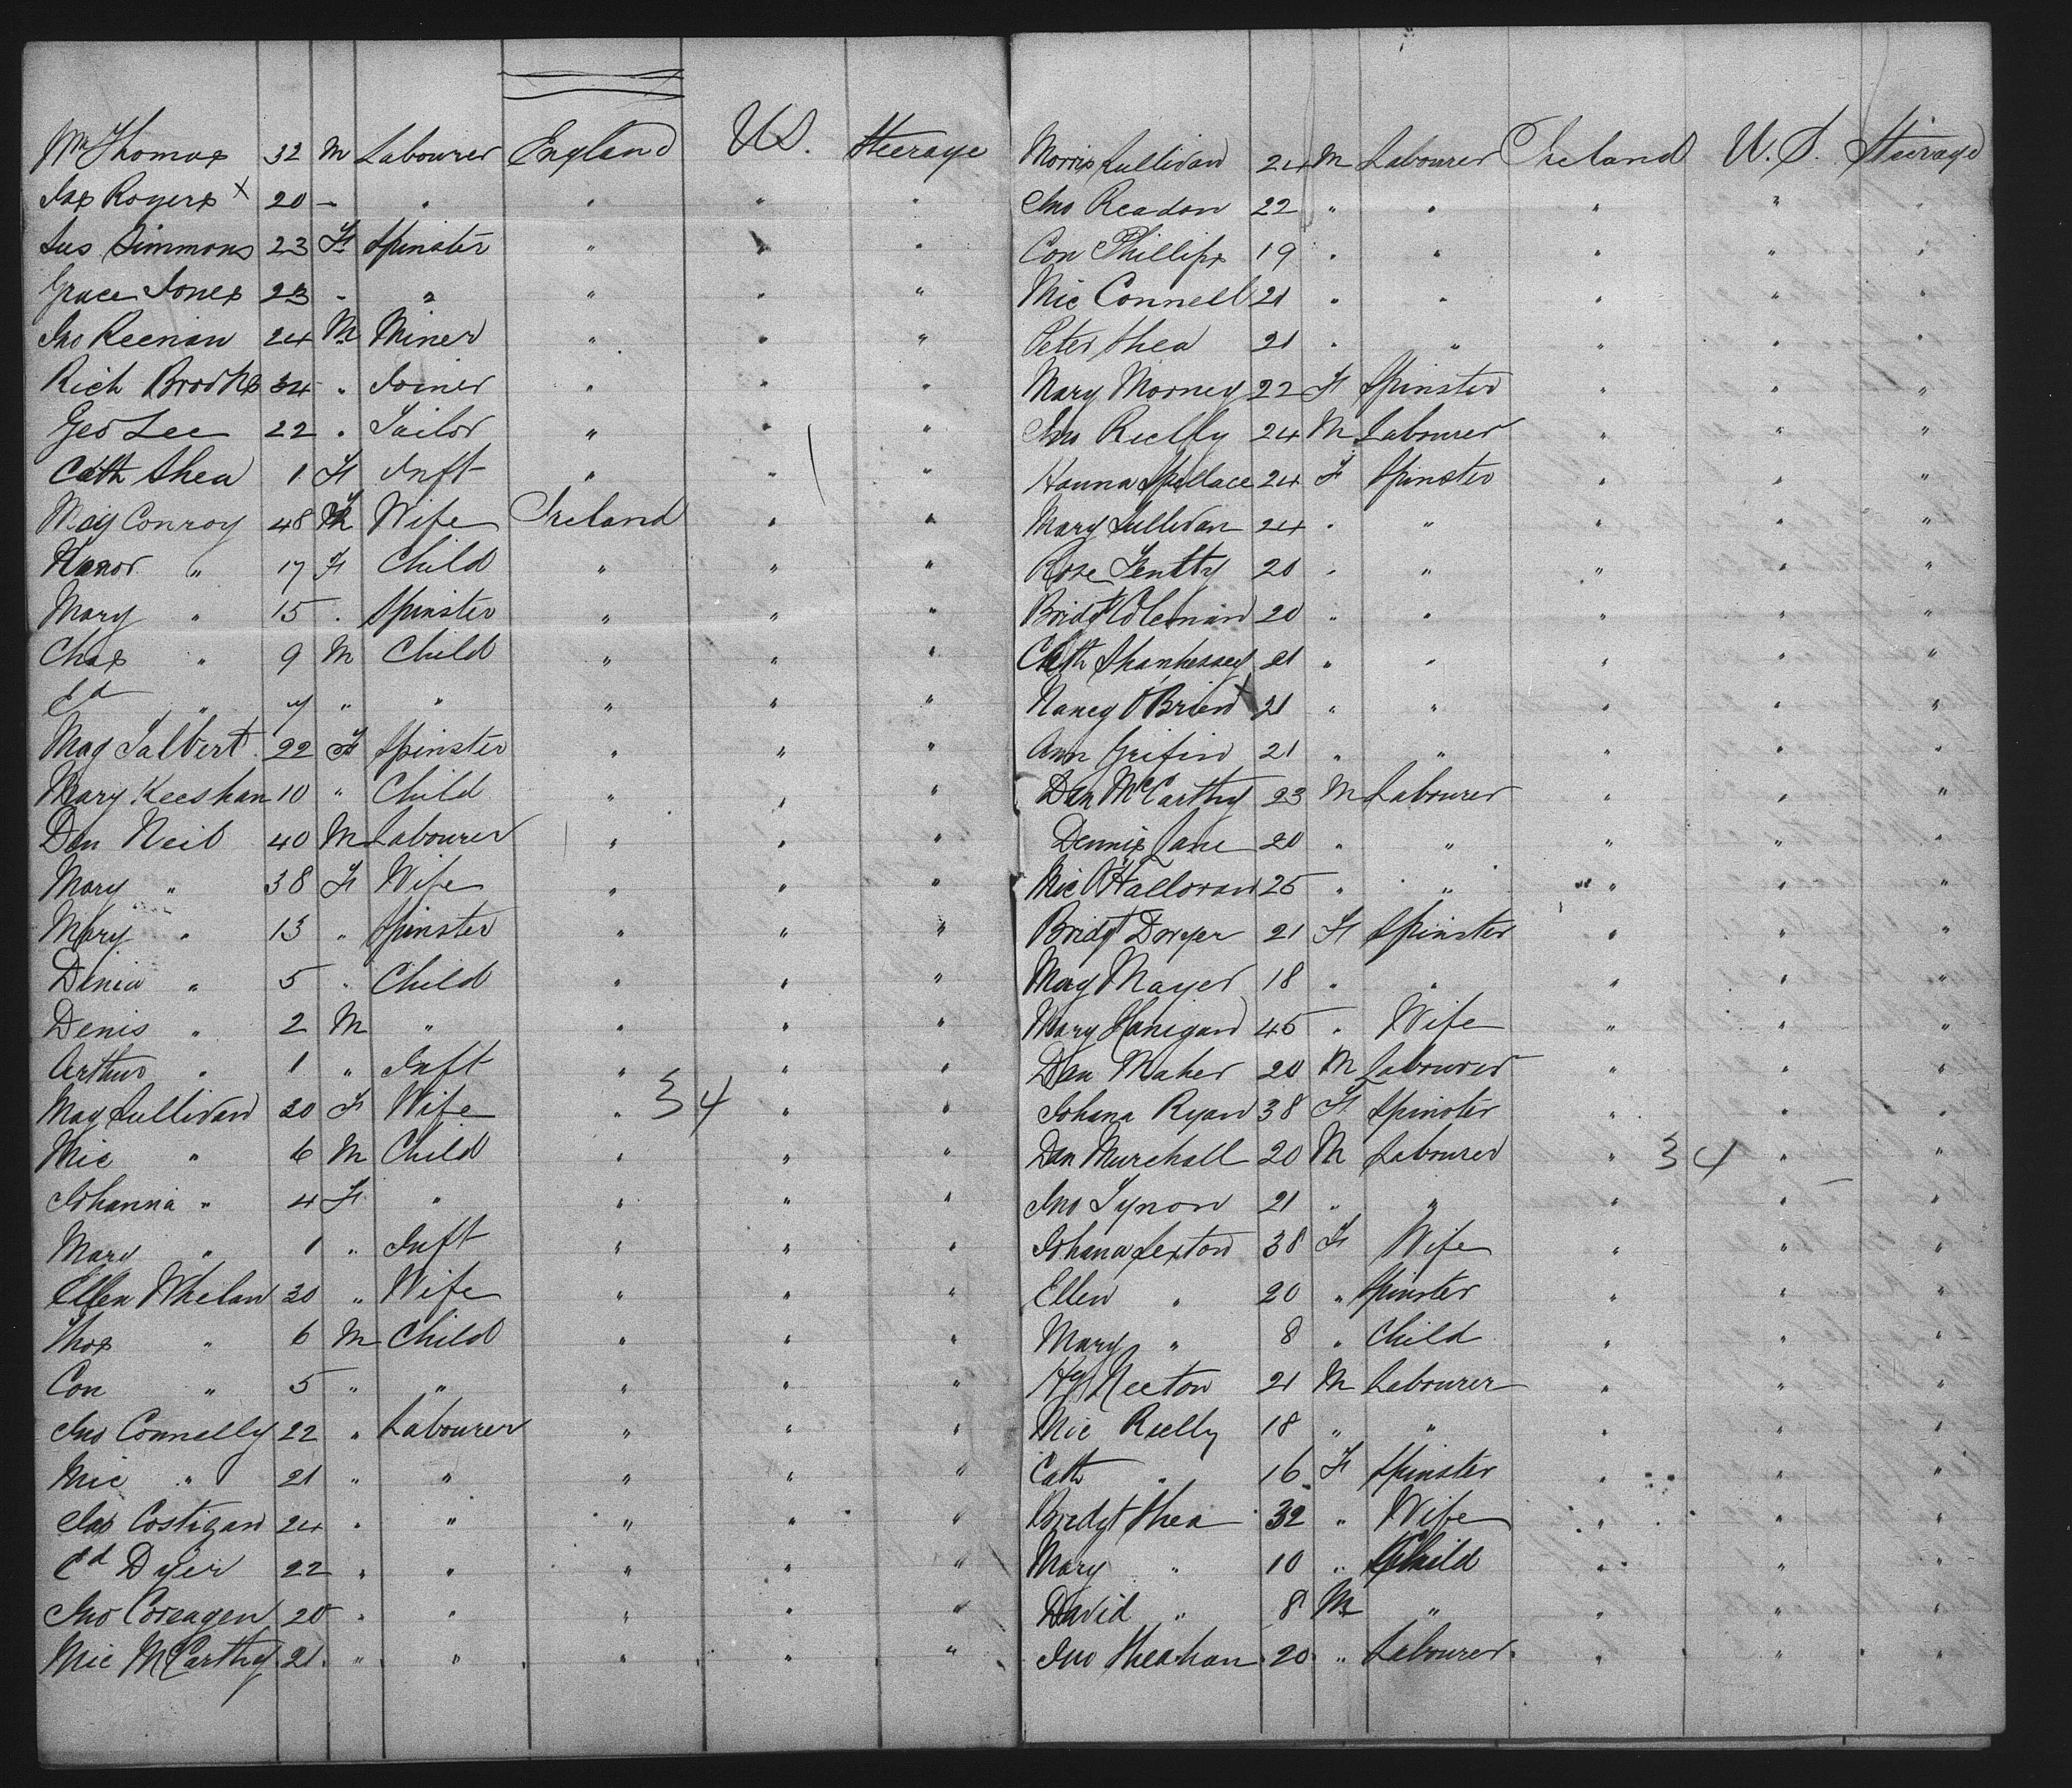 Wm Thomas 32 M Labourer England U.S. Steerage
Jas Rogers x 20 - " " " "
Sus Simmons 23 F Spinster " " "
Grace Jones 23 - " " " "
Jno Keenan 24 M Miner " " "
Rich Brookes 34 " Joiner " " "
Geo Lee 22 " Tailor " " "
Cath Shea 1 F Inft " " "
Mag Conroy 48 Wife Ireland " "
Honor " 17 F Child " " "
Mary " 15 " Spinster " " "
Chas " 9 M Child " " "
Ed " 7 " " " " "
Mag Talbert 22 F Spinster " " "
Mary Keeshan 10 " Child " " "
Dan Neil 40 M Labourer " " "
Mary " 38 F Wife " " "
Mary " 13 " Spinster " " "
" 5 " Child " " "
Denis " 2 M " " " "
Arthur " 1 " Inft " " "
Mag Sullivan 30 F Wife " 34 " "
Mic " 6 M Child " " "
Johanna " 4 F " " " "
Mary " 1 " Inft " " "
Ellen Whelan 30 " Wife " " "
Thos " 6 M Child " " "
Con " 5 " " " " "
Jno Connelly 22 " Labourer " " "
Mic " 21 " " " " "
Jas Costigan 24 " " " " "
Ed Dyer 22 " " " " "
Jno Coreagen 20 " " " " "
Mic McCarthy 21 " " " " "
Morris Sullivan 24 M Labourer Ireland U.S. Steerage
Jno Readon 22 " " " " "
Con Phillips 19 " " " " "
Mic Connell 21 " " " " "
Peter Shea 21 " " " " "
Mary Morney 22 F Spinster " " "
Jno Rielly 24 M Labourer " " "
Hanna Spellace 24 F Spinster " " "
Mary Sullivan 24 " " " " "
Rose 20 " " " " "
Bridgt Coleman 20 " " " " "
Cath Shanhessey 21 " " " " "
Nancy O'Brien x 21 " " " " "
Ann Grifin 21 " " " " "
Dan McCarthy 23 M Labourer " " "
Dennis Lane 20 " " " " "
Mic O'Halloran 25 " " " " "
Bridgt Dwyer 21 F Spinster " " "
Mag Mayer 18 " " " " "
Mary Hanigan 45 " Wife " " "
Dan Maher 20 M Labourer " " "
Johana Ryan 38 F Spinster " " "
Dan Murchall 20 M Labourer " 34 " "
Jno Lynon 21 " " " " "
Johana Sexton 38 F Wife " " "
Ellen " 20 " Spinster " " "
Mary " 8 " Child " " "
Hy Neeton 21 M Labourer " " "
Mic Rielly 18 " " " " "
Cath " 16 F Spinster " " "
Bridgt Shea 32 " Wife " " "
Mary " 10 " Child " " "
David " 8 M " " " "
Jno Sheahan 20 " Labourer " " "